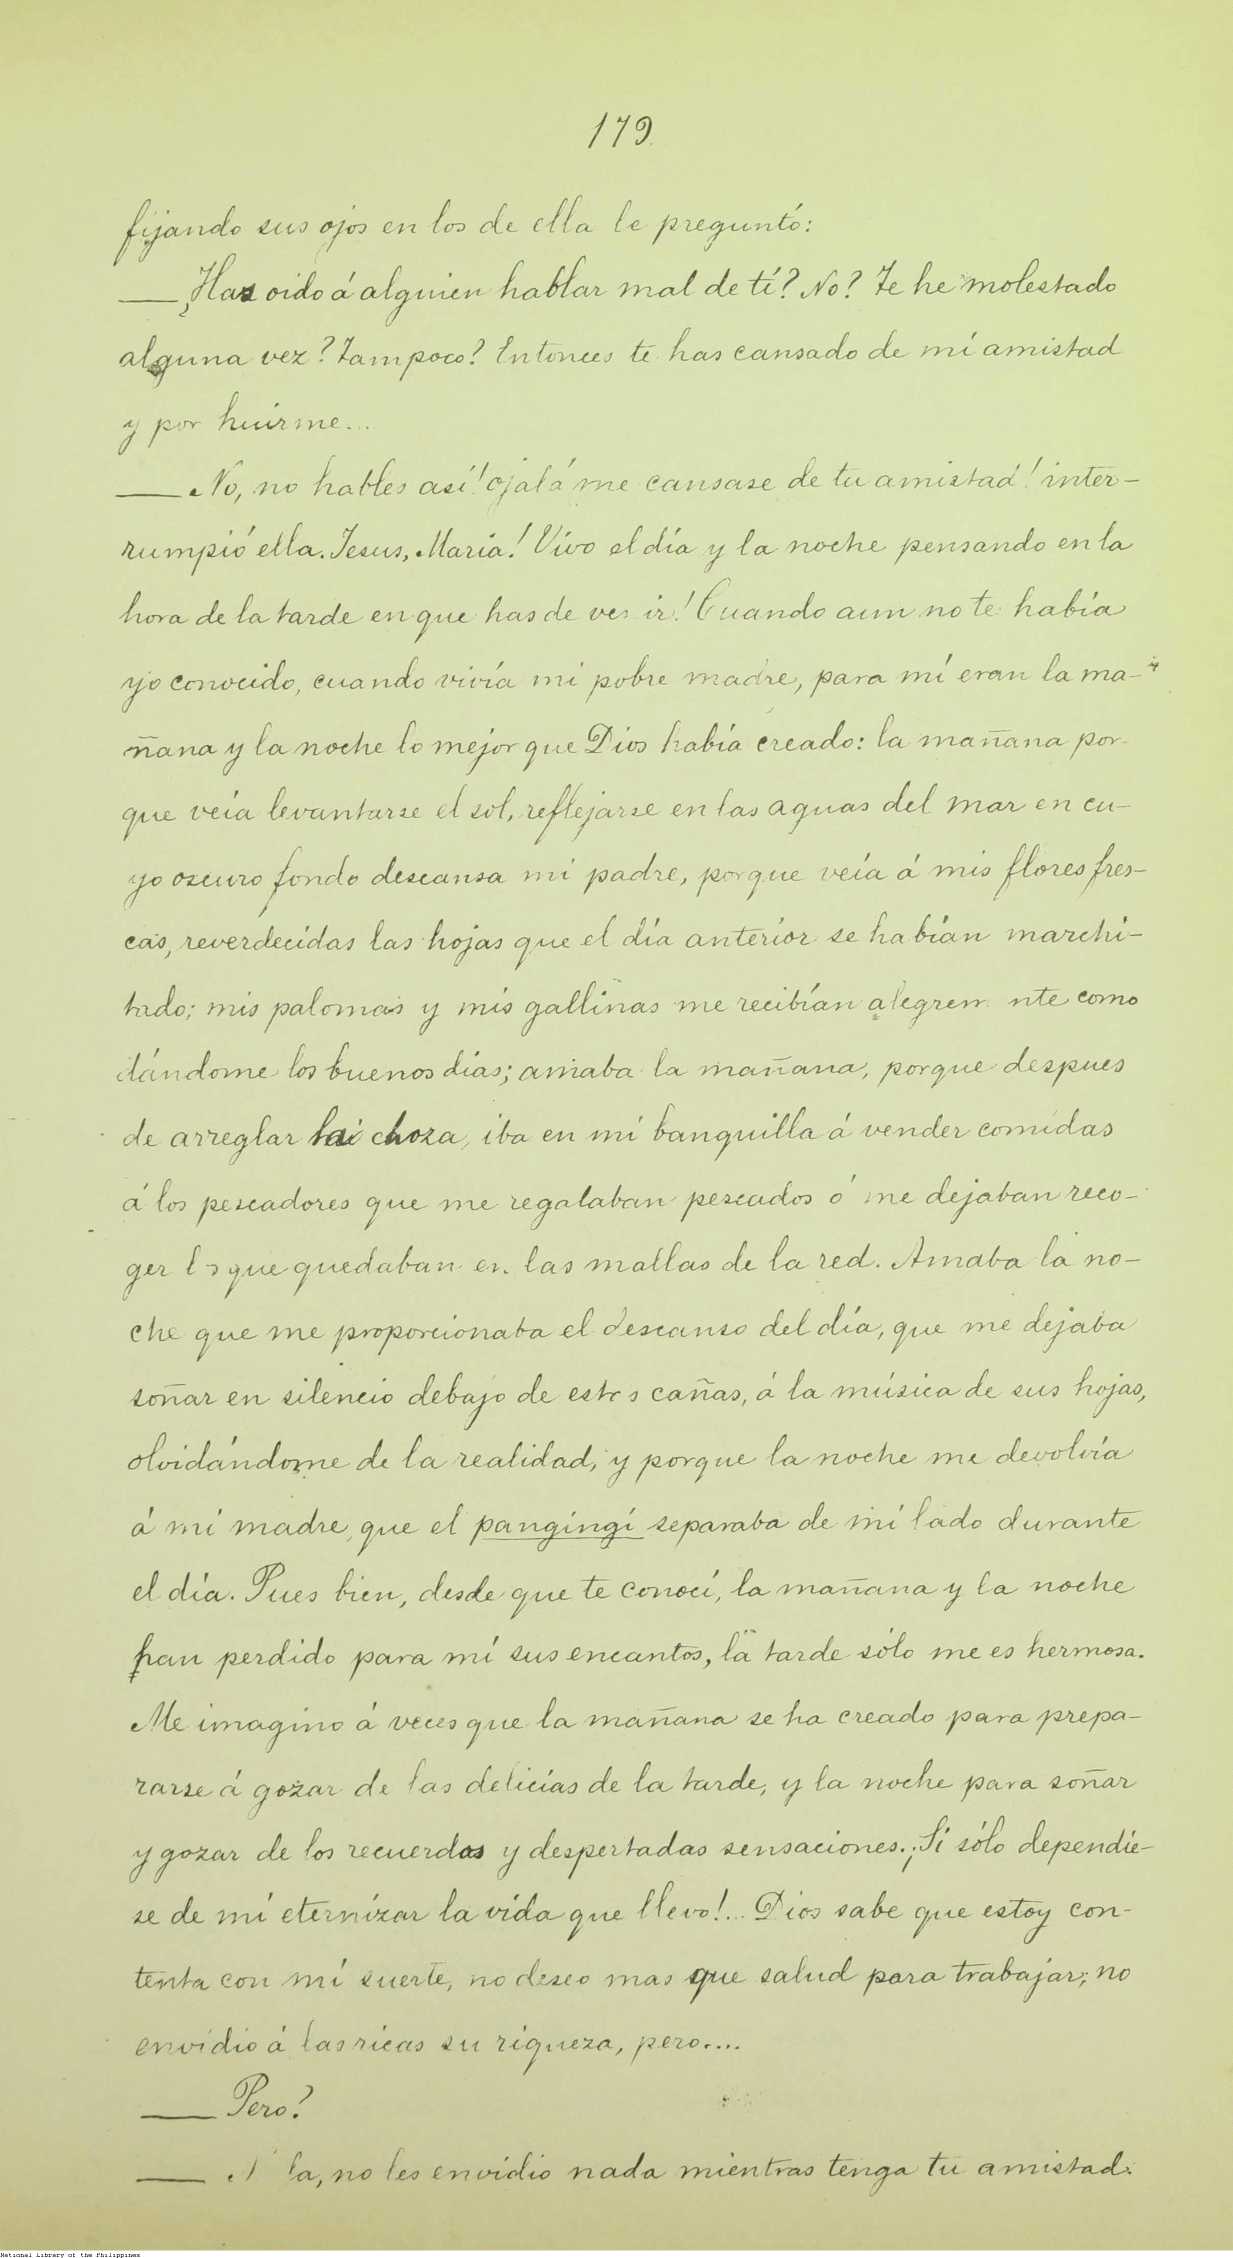 179.
fijando sus ojos en los de ella le preguntó:
— ¿Has oido á alguien hablar mal de tí? No? Te he molestado
alguna vez? Tampoco? Entonces te has cansado de mi amistad
y por huirme...
— No, no hables así! ojalá me cansase de tu amistad! inter-
rumpió ella. Jesus, Maria! Vivo el día y la noche pensando en la
hora de la tarde en que has de venir! Cuando aun no te había
yo conocido, cuando vivía mi pobre madre, para mí eran la ma-
ñana y la noche lo mejor que Dios había creado: la mañana por-
que veía levantarse el sol, reflejarse en las aguas del mar en cu-
yo oscuro fondo descansa mi padre, porque veía á mis flores fres-
cas, reverdecidas las hojas que el día anterior se habían marchi-
tado; mis palomas y mis gallinas me recibían alegremente como
dándome los buenos días; amaba la mañana, porque despues
de arreglar choza, iba en mi banquilla á vender comidas
á los pescadores que me regalaban pescados ó me dejaban reco-
ger lo que quedaban en las mallas de la red. Amaba la no-
che que me proporcionaba el descanso del día, que me dejaba
soñar en silencio debajo de estas cañas, á la música de sus hojas,
olvidándome de la realidad, y porque la noche me devolvía
á mi madre, que el pangingi separaba de mi lado durante
el día. Pues bien, desde que te conocí, la mañana y la noche
han perdido para mí sus encantos, la tarde sólo me es hermosa.
Me imagino á veces que la mañana se ha creado para prepa-
rarse á gozar de las delicias de la tarde, y la noche para soñar
y gozar de los recuerdos y despertadas sensaciones. ¡Si sólo dependie-
se de mí eternizar la vida que llevo!... Dios sabe que estoy con-
tenta con mi suerte, no deseo mas que salud para trabajar; no
envidio á las ricas su riqueza, pero....
— Pero?
— Nada, no les envidio nada mientras tenga tu amistad.
National Library of the Philippines